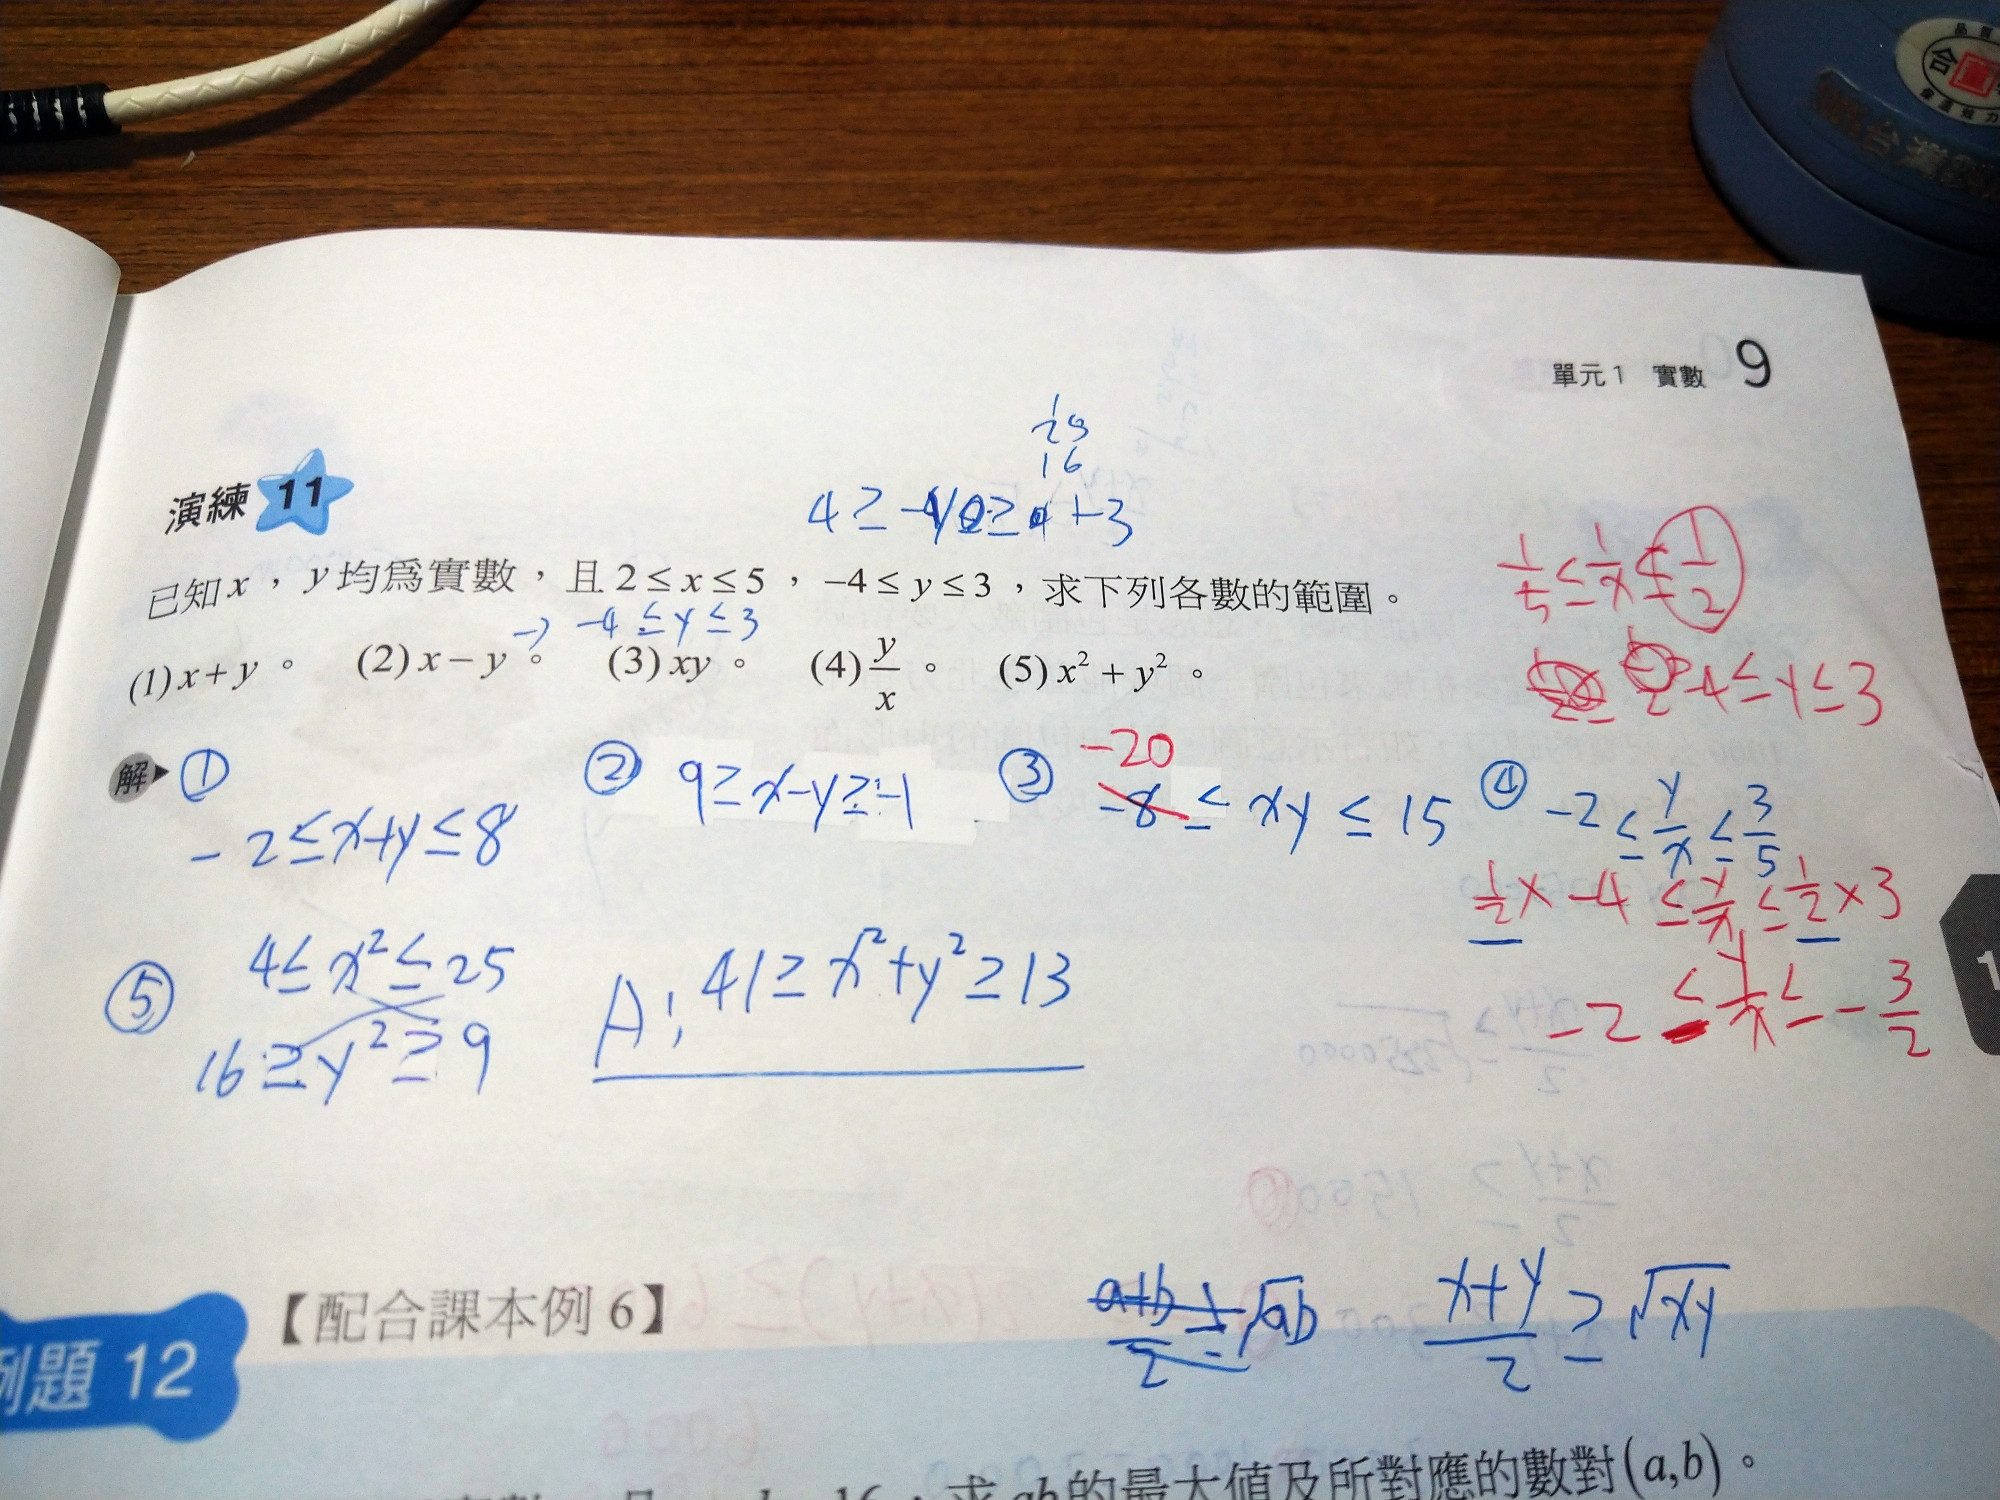 單元1 實數 9
演練 11
25
16
4 ≥ -y ≥ +3
已知 x，y 均為實數，且 2 ≤ x ≤ 5，-4 ≤ y ≤ 3，求下列各數的範圍。
→ -4 ≤ y ≤ 3
(1) x+y。 (2) x-y。 (3) xy。 (4) y/x。 (5) x²+y²。
1/5 ≤ 1/x ≤ 1/2
-4 ≤ y ≤ 3
解 ① -2 ≤ x+y ≤ 8
② 9 ≥ x-y ≥ -1
③ -20 -8 ≤ xy ≤ 15
④ -2 ≤ y/x ≤ 3/5
1/2 x -4 ≤ y/x ≤ 1/2 x 3
-2 ≤ y/x ≤ - 3/2
⑤ 4 ≤ x² ≤ 25
16 ≥ y² ≥ 9
A: 41 ≥ x²+y² ≥ 13
【配合課本例 6】
(a+b)/2 ≥ √ab
(x+y)/2 ≥ √xy
例題 12
求 ab 的最大值及所對應的數對 (a,b)。
合
台灣
1